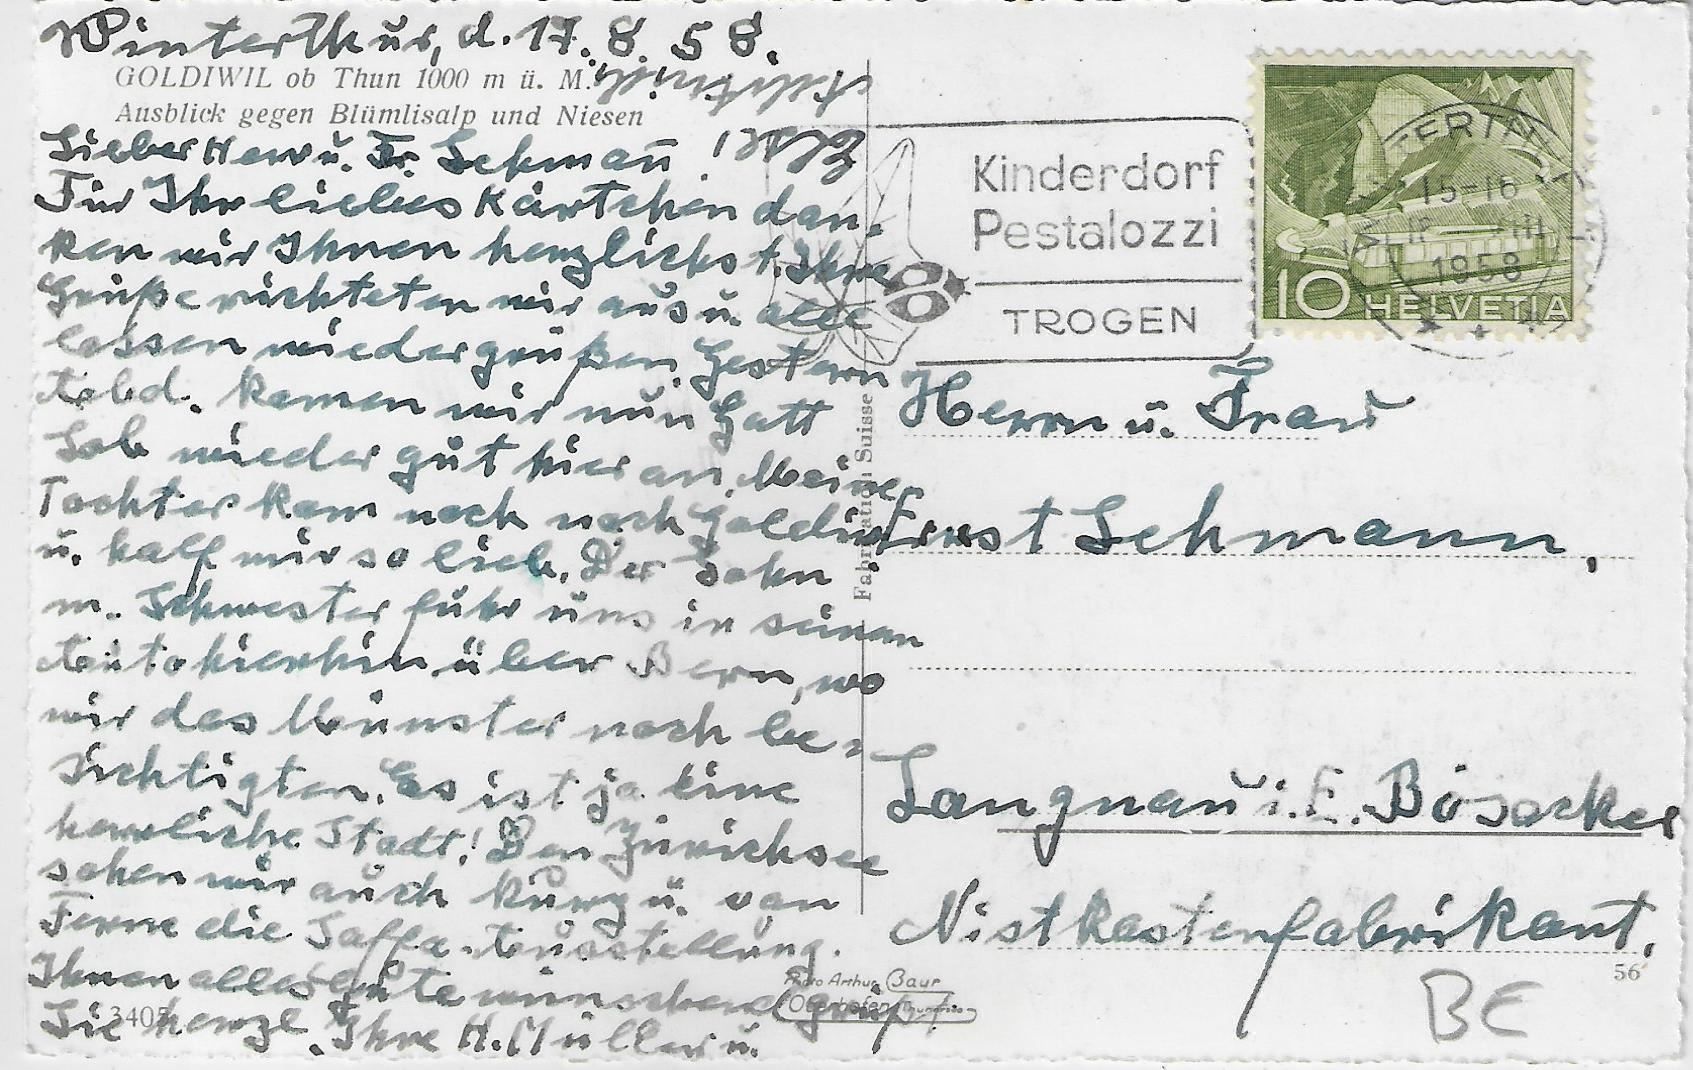 Winterthur, d. 17. 8. 58.
GOLDIWIL ob Thun 1000 m ü. M.
Ausblick gegen Blümlisalp und Niesen
Lieber Herr u. Fr. Lehmann!
Für Ihr liebes Kärtchen dan-
ken wir Ihnen herzlichst. Ihre
Grüße richteten wir aus u. alle
lassen wieder grüßen. Gestern
Abd. kamen wir nun Gott
Lob wieder gut hier an. Meine
Tochter kam noch nach Goldiwil
u. half mir so lieb. Der Sohn
m. Schwester fuhr uns in seinem
Auto hierhin über Bern, wo
wir das Münster noch be-
sichtigten. Es ist ja eine
herrliche Stadt! Den Zürichsee
sahen wir auch kurz u. von
Ferne die Saffa-Ausstellung.
Ihnen alles Gute wünschend grüßt
Sie herzl. Ihre H. Müller u.
3405
Photo Arthur Baur
Oberhofen Thunersee
Fabrication Suisse
Kinderdorf
Pestalozzi
TROGEN
15-16
1958
10 HELVETIA
Herrn u. Frau
Ernst Lehmann,
Langnau i. E. Bösacker
Nistkastenfabrikant.
56
BE